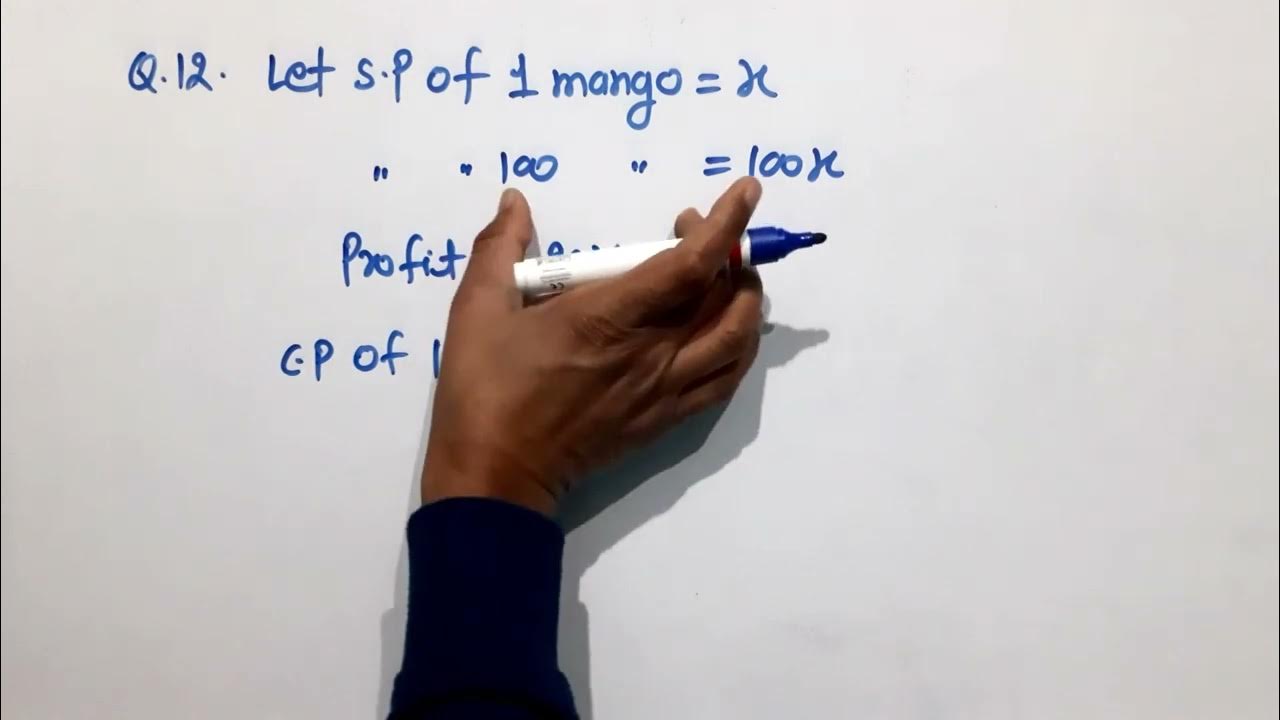 Q.12. Let S.P of 1 mango = x
" " 100 " = 100x
Profit
C.P of 1